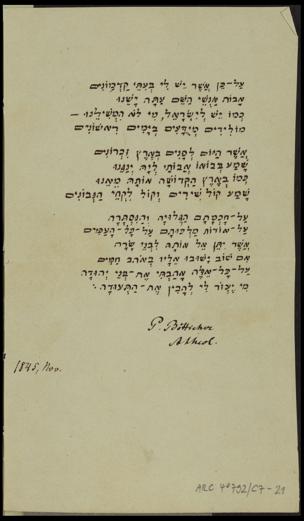 עַל־כֵּן אֲשֶׁר יֵשׁ לִי בְּעִתֵּי קַדְמוֹנִים
אָבוֹת אַנְשֵׁי הַשֵּׁם עַתָּה יָשֵׁנוּ
כְּמוֹ יֵשׁ לְיִשְׂרָאֵל, מִי לֹא הִמְשִׁילָנוּ —
מוֹלִידִים מְיֻדָּעִים בְּיָמִים רִאשׁוֹנִים
אֲשֶׁר הַיּוֹם לְפָנִים בְּאֶרֶץ זִכְרוֹנִים
שָׁמַע בְּבוֹאוֹ אֲבוֹתַי
כְּמוֹ בְּאֶרֶץ הַקְּדוֹשָׁה אוֹתָהּ
שָׁמַע קוֹל שִׁירִים וְקוֹל לִקְחֵי הַנְּבוֹנִים
עַל־חָכְמָתָם הַגְּלוּיָה וְהַנִּסְתָּרָה
עַל־אוֹרוֹת מַלְכוּתָם עַל־כָּל־הָעַמִּים
אֲשֶׁר יִתֵּן אֵל אוֹתָהּ לִבְנֵי שָׂרָה
אִם שׁוֹב יָשׁוּבוּ אֵלָיו בְּאֹהֶב תַּמִּים
עַל־כָּל־אֵלֶּה אָהַבְתִּי אֶת־בְּנֵי יְהוּדָה
מִי יַעֲזוֹר לִי לְהָבִין אֶת־הַתְּעוּדָה:
P. Bötticher
1845, Nov.
ARC 4° 792/C7-21